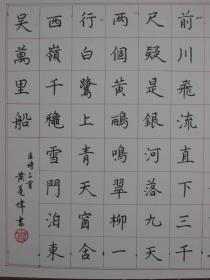 前川飛流直下三千
尺疑是銀河落九天
两個黃鸝鳴翠柳一
行白鷺上青天窗含
西嶺千穐雪門泊東
吳萬里船
古詩二首
黃堯偉書